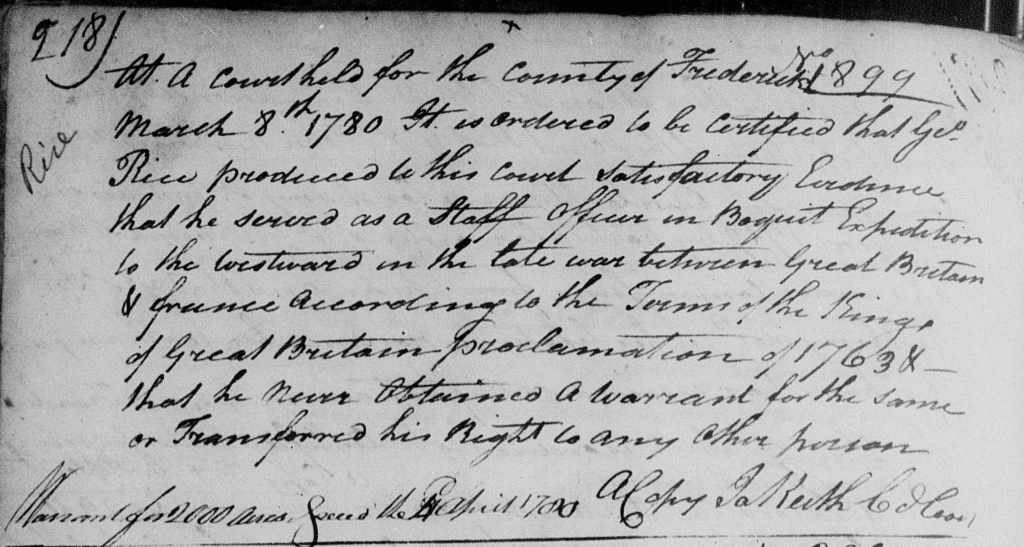 218
At A Court held for the County of Frederick
No 1899
March 8.th 1780 It is ordered to be certified that Geo.
Rice
Rice produced to this Court satisfactory Evidence
that he serv'd as a Staff Officer in Boquit Expedition
to the westward in the late war between Great Britain
& france According to the Terms of the Kings
of Great Britain proclamation of 1763 & —
that he Never Obtained A Warrant for the same
or Transferred his Right to any other person
A Copy Ja Keith C
Warrant for 2000 acres Issued the April 1780